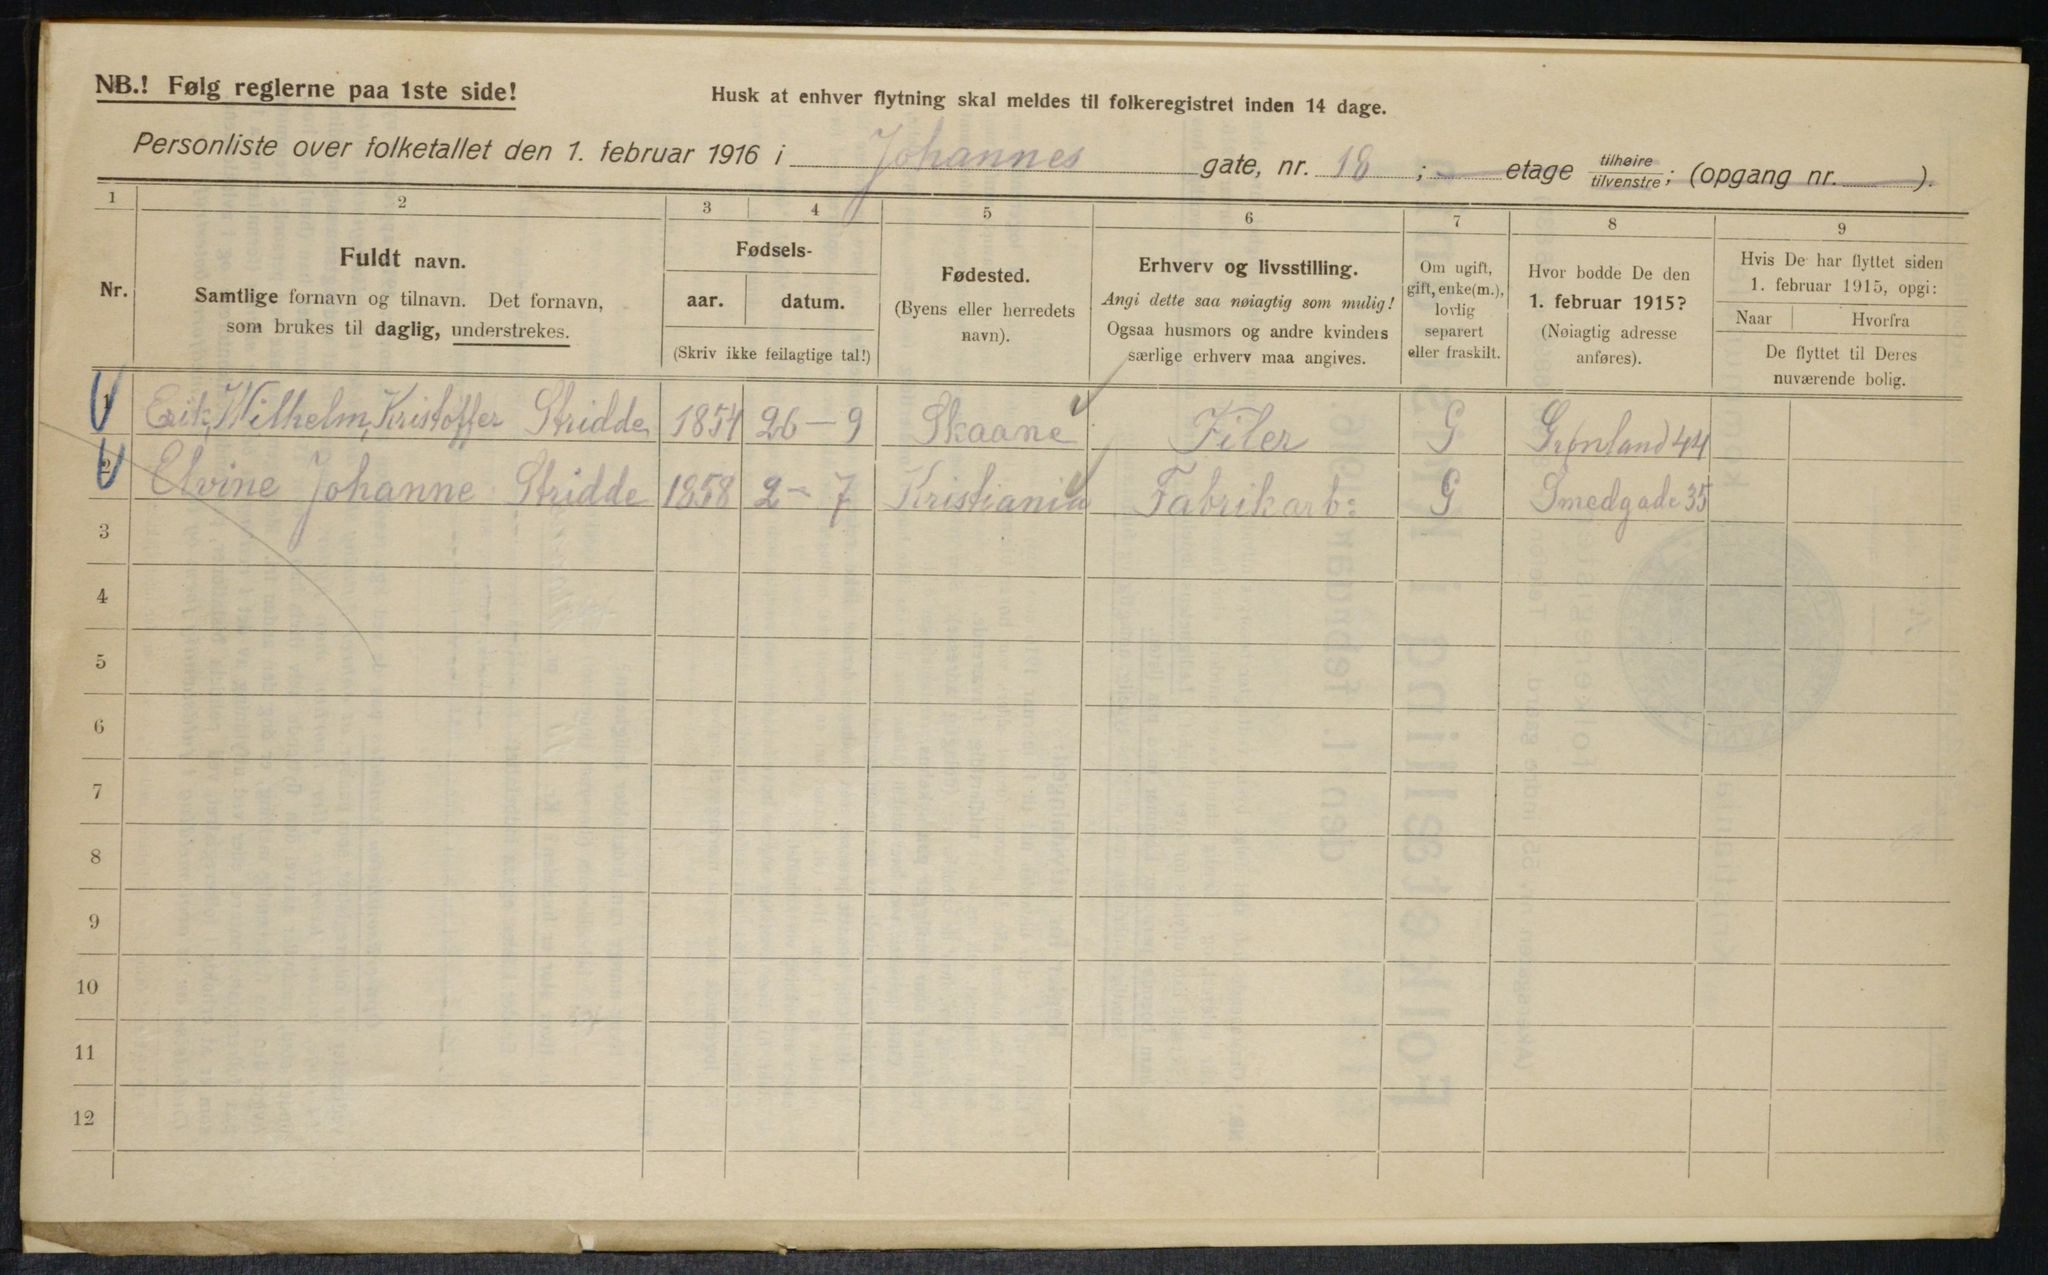 NB.! Følg reglerne paa 1ste side!
Husk at enhver flytning skal meldes til folkeregistret inden 14 dage.
Personliste over folketallet den 1. februar 1916 i Johannes gate, nr. 18 ; etage tilhøire tilvenstre; (opgang nr. ).
1 2 3 4 5 6 7 8 9
Nr.
Fuldt navn.
Samtlige fornavn og tilnavn. Det fornavn,
som brukes til daglig, understrekes.
Fødsels-
aar. datum.
(Skriv ikke feilagtige tal!)
Fødested.
(Byens eller herredets
navn).
Erhverv og livsstilling.
Angi dette saa nøiagtig som mulig!
Ogsaa husmors og andre kvinders
særlige erhverv maa angives.
Om ugift,
gift, enke(m.),
lovlig
separert
eller fraskilt.
Hvor bodde De den
1. februar 1915?
(Nøiagtig adresse
anføres).
Hvis De har flyttet siden
1. februar 1915, opgi:
Naar Hvorfra
De flyttet til Deres
nuværende bolig.
1 Erik, Wilhelm, Kristoffer Stridde 1854 26-9 Skaane Filer G Grønland 44
2 Elvine Johanne Stridde 1858 2-7 Kristiania Fabrikarb: G Smedgade 35
3
4
5
6
7
8
9
10
11
12